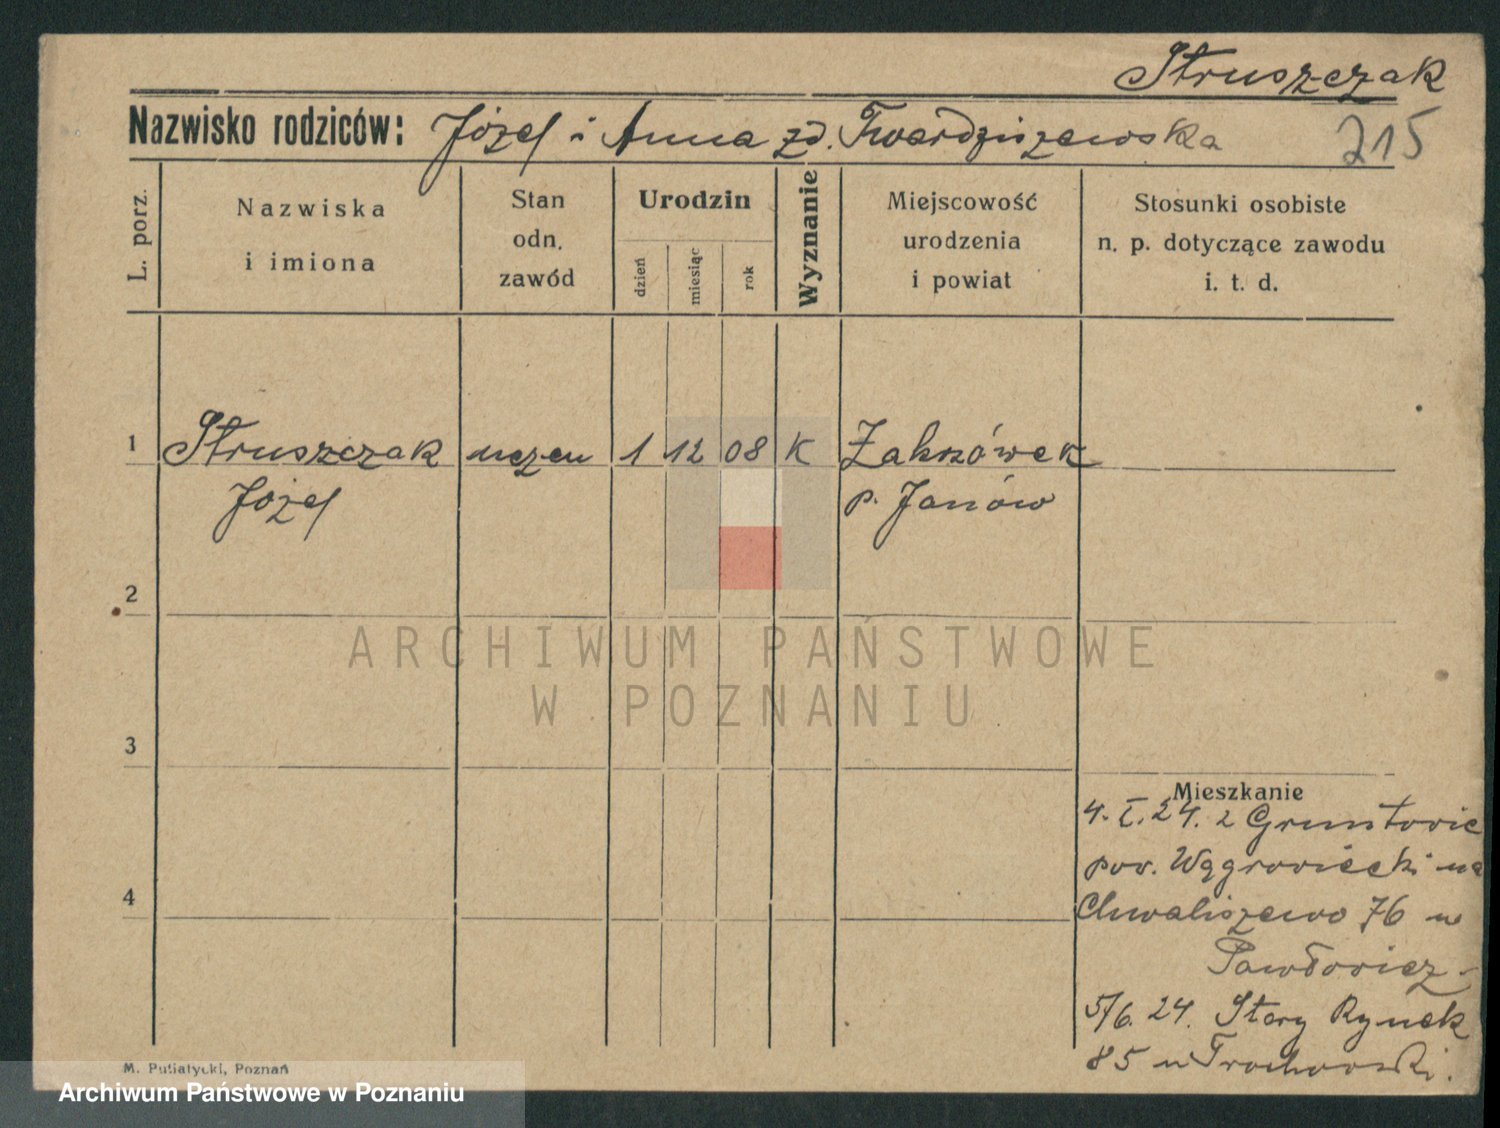 Struszczak
Nazwisko rodziców: Józef i Anna zd. Twardziszewska 215
L. porz.
Nazwiska
i imiona
Stan
odn.
zawód
Urodzin
dzień
miesiąc
rok
Wyznanie
Miejscowość
urodzenia
i powiat
Stosunki osobiste
n. p. dotyczące zawodu
i. t. d.
1 Struszczak uczeń 1 12 08 K Zakrzówek
Józef p. Janów
2
3
4
Mieszkanie
4. I. 24. z Gruntowic
pow. Wągrowiecki na
Chwaliszewo 76 u
5/6. 24. Stary Rynek
85 u
M. Putiatycki, Poznań
ARCHIWUM PAŃSTWOWE
W POZNANIU
Archiwum Państwowe w Poznaniu